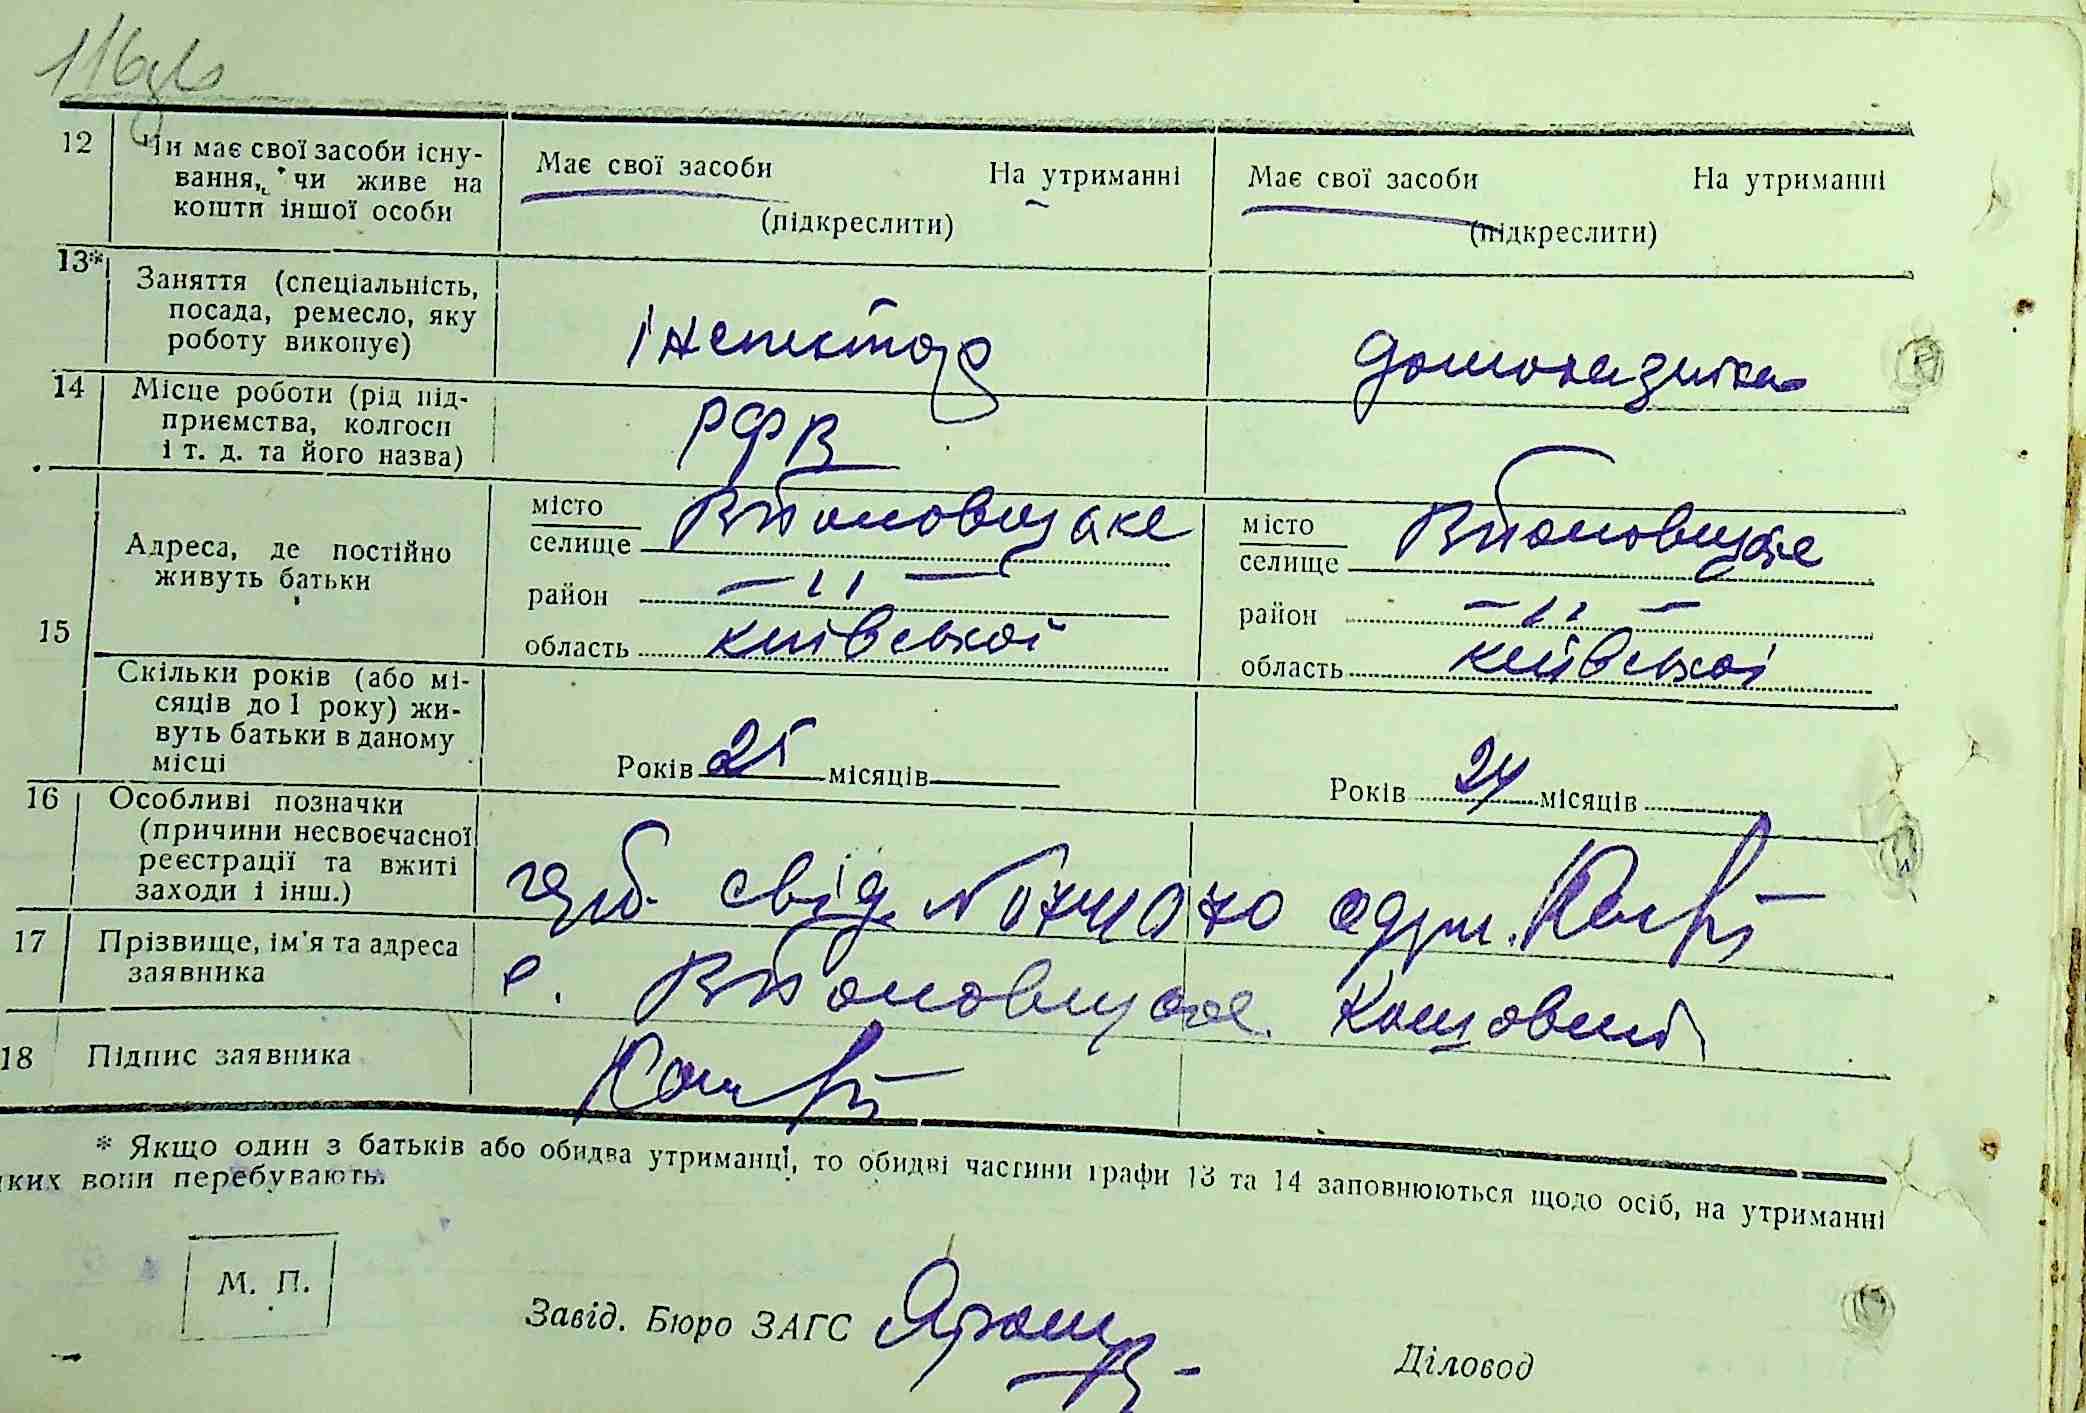 116
12 Чи має свої засоби існу-
вання, чи живе на
кошти іншої особи
Має свої засоби На утриманні
(підкреслити)
Має свої засоби На утриманні
(підкреслити)
13* Заняття (спеціальність,
посада, ремесло, яку
роботу виконує)
інспектор
домохазяйка
14 Місце роботи (рід під-
приємства, колгосп
і т. д. та його назва)
РФВ
15 Адреса, де постійно
живуть батьки
місто
селище
район — ıı —
область київської
місто
селище
район — ıı —
область київської
Скільки років (або мі-
сяців до 1 року) жи-
вуть батьки в даному
місці
Років 25 місяців
Років 24 місяців
16 Особливі позначки
(причини несвоєчасної
реєстрації та вжиті
заходи і інш.)
свід. №
17 Прізвище, ім'я та адреса
заявника
с. Кошовий
18 Підпис заявника
* Якщо один з батьків або обидва утриманці, то обидві частини графи 13 та 14 заповнюються щодо осіб, на утриманні
яких вони перебувають.
М. П.
Завід. Бюро ЗАГС
Діловод